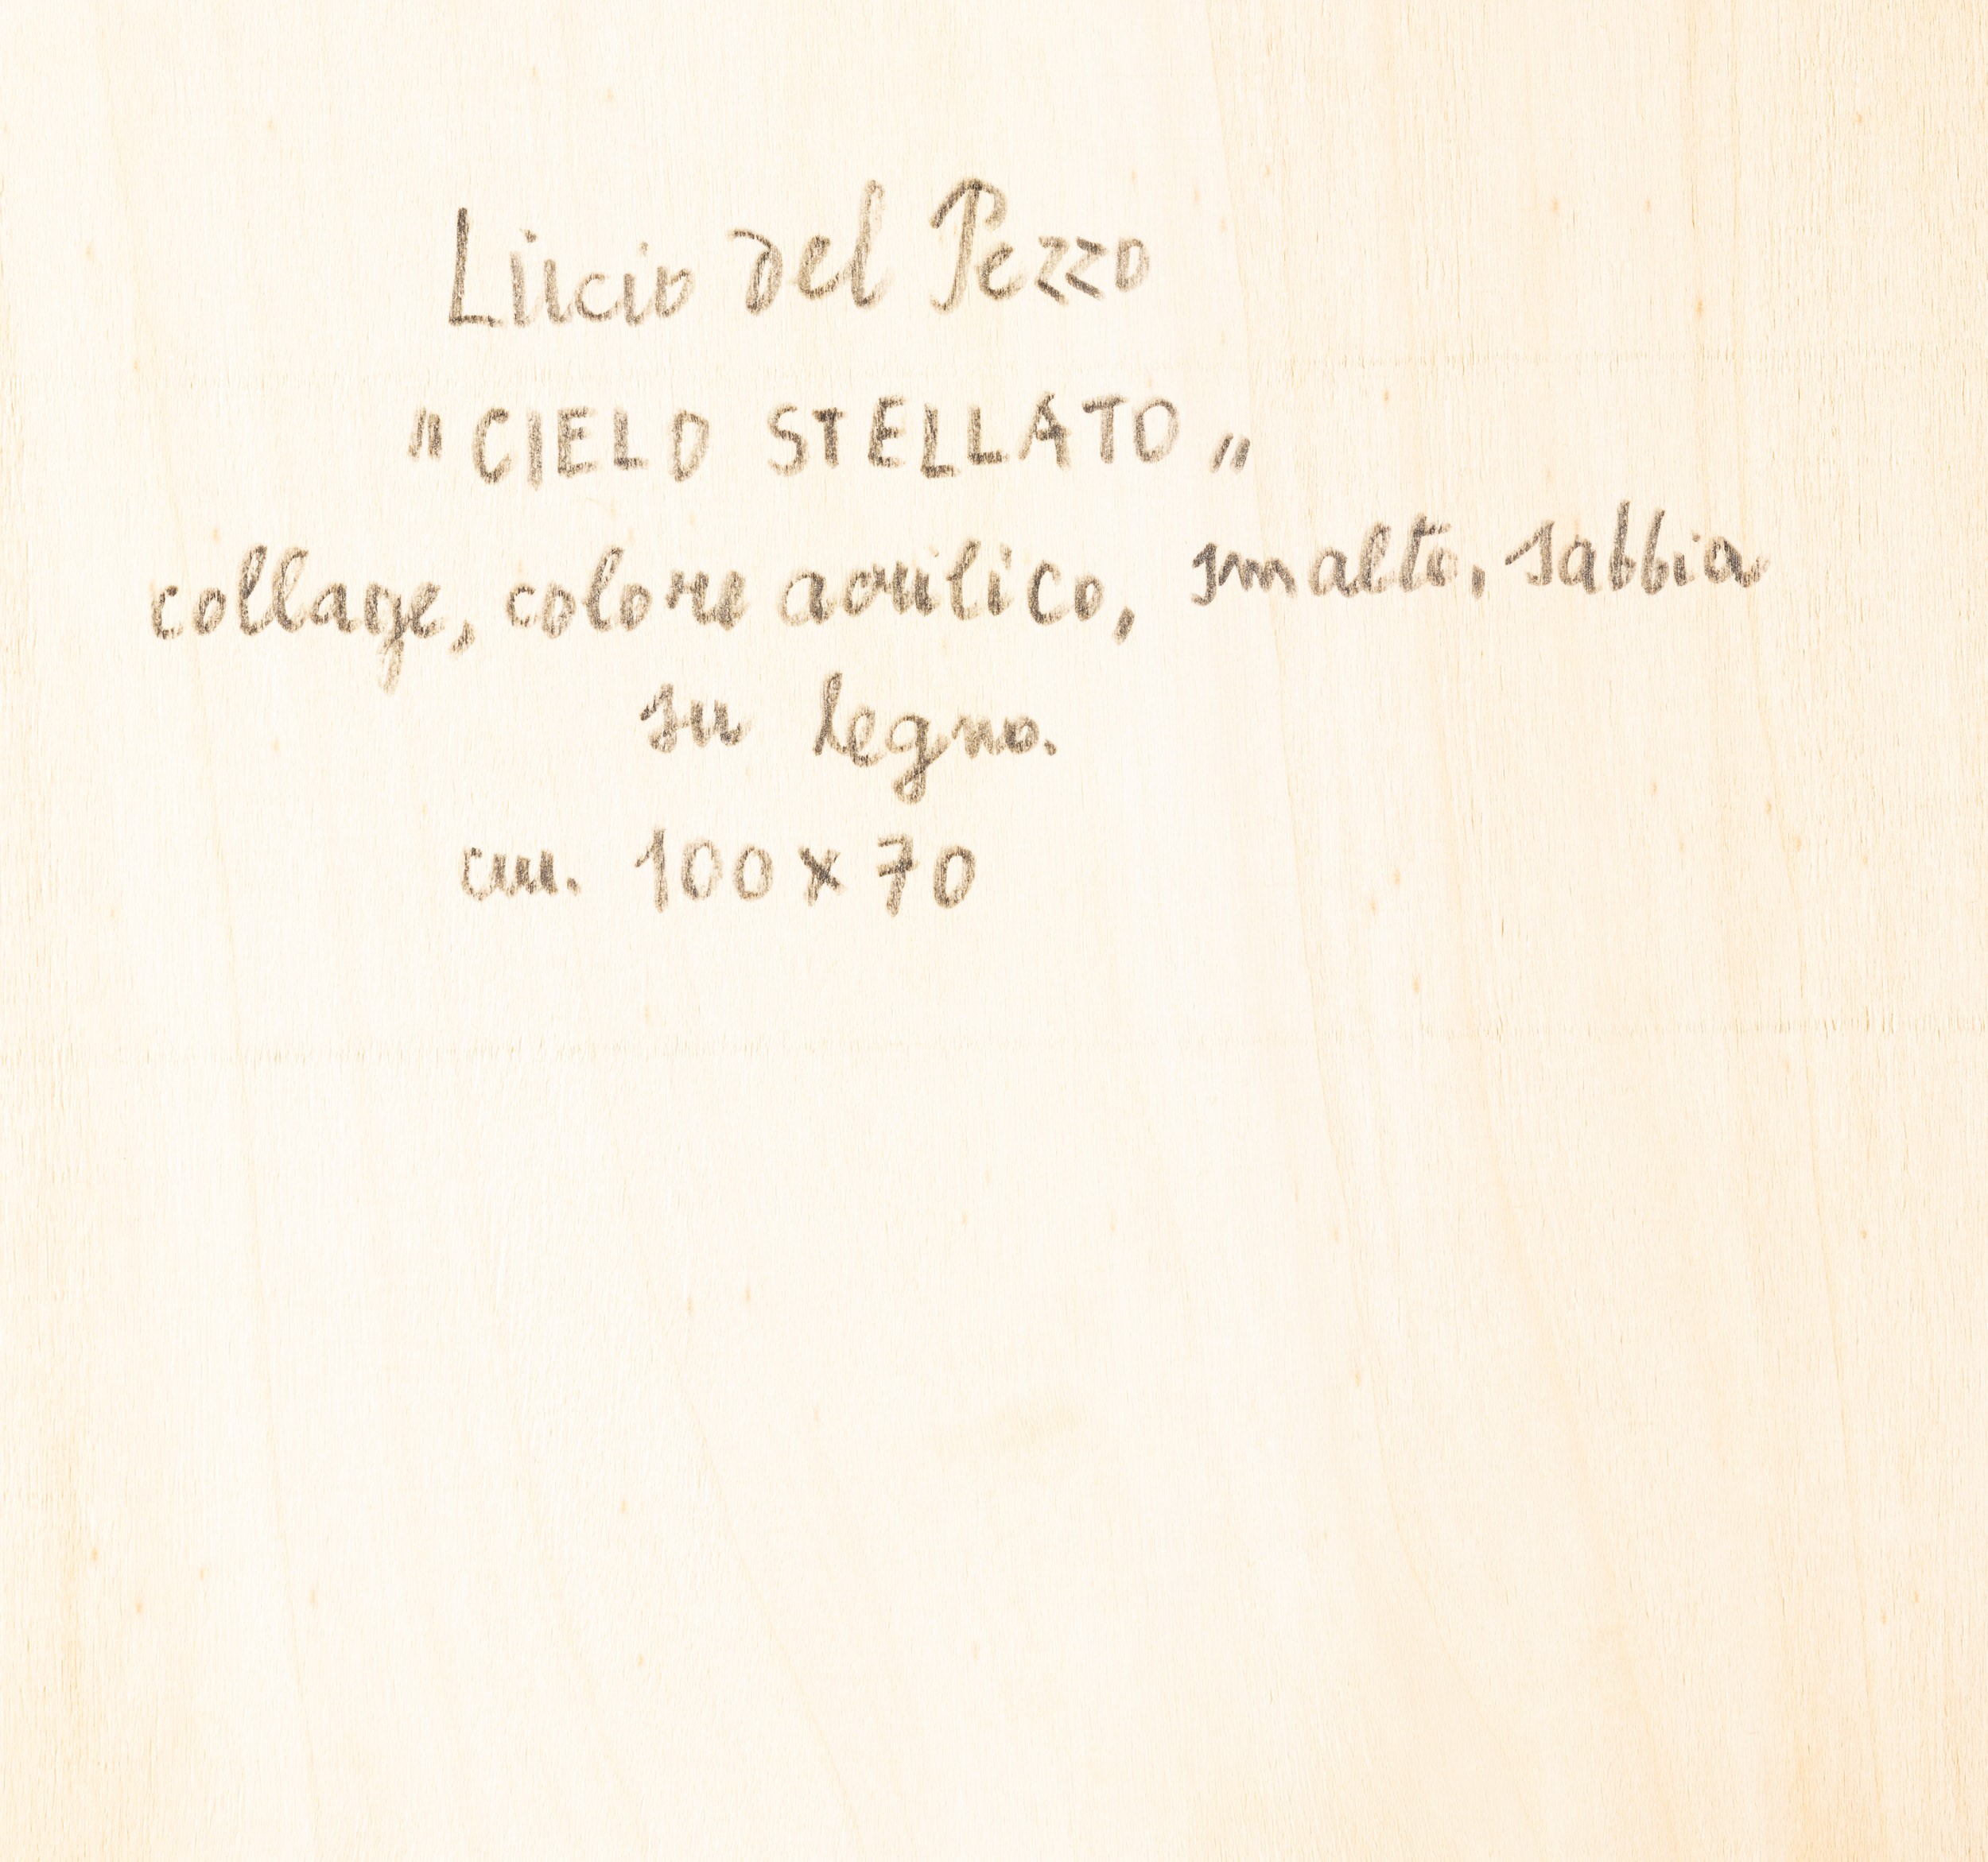 Lucio del Pezzo
"CIELO STELLATO"
collage, colore acrilico, smalto, sabbia
su legno.
cm. 100 x 70